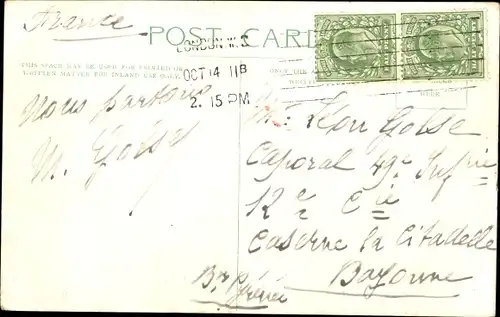 France
POST CARD
LONDON. W.S
THIS SPACE MAY BE USED FOR PRINTED OR
WRITTEN MATTER FOR INLAND USE ONLY.
OCT 14 11
2. 15 PM
Nous partons
M.
Mr Léon
Caporal 49e Infrie
12e Cie
Caserne la Citadelle
Bayonne